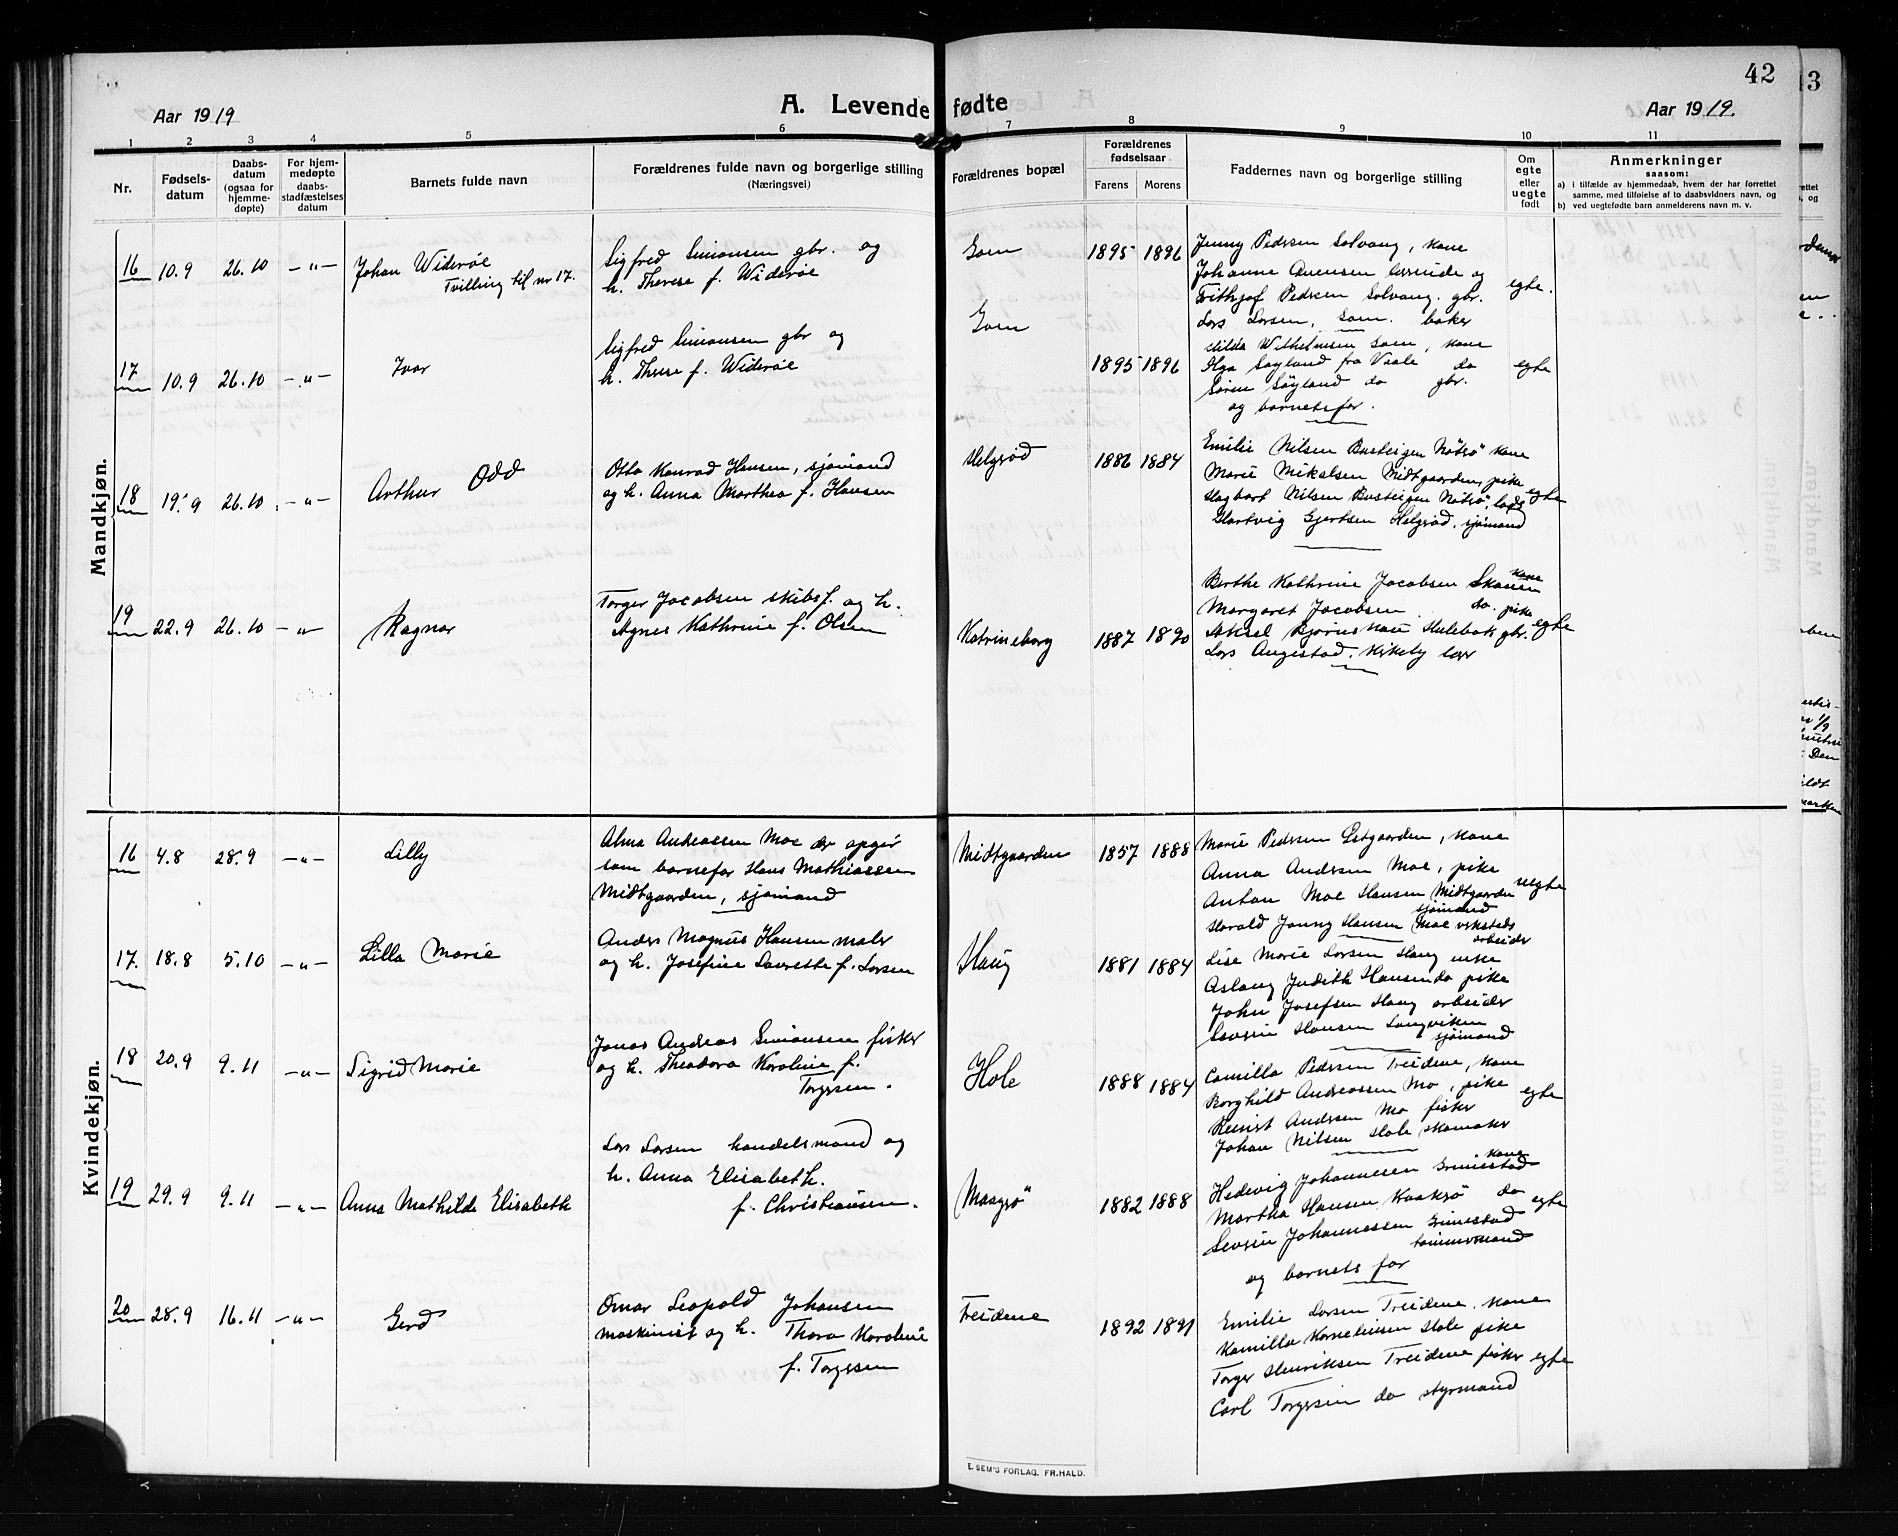 42
Aar 1919
A. Levende fødte
Aar 1919.
1 2 3 4 5 6 7 8 9 10 11
Nr.
Fødsels-
datum
Daabs-
datum
(ogsaa for
hjemme-
døpte)
For hjem-
medøpte
daabs-
stadfæstelses
datum
Barnets fulde navn
Forældrenes fulde navn og borgerlige stilling
(Næringsvei)
Forældrenes bopæl
Forældrenes
fødselsaar
Farens Morens
Faddernes navn og borgerlige stilling
Om
egte
eller
uegte
født
Anmerkninger
saasom:
a) i tilfælde av hjemmedaab, hvem der har forrettet
samme, med tilføielse af to daabsvidners navn, og
b) ved uegtefødte barn anmelderens navn m. v.
Mandkjøn.
16 10.9 26.10 -"-
Johan Widerøe
Tvilling til nr 17.
Sigfred Simonsen gbr. og
h. Therese f. Widerøe
1895 1896
Jenny Pedersen Solvang, kone
Johanne lærerinde og
Fithjof Pedersen Solvang. gbr.
Lars Larsen, Som. baker
egte.
17 10.9 26.10 -"-
Ivar
Sigfred Simonsen gbr og
h. Therese f. Widerøe
1895 1896
Hilda Wilhelmsen Som, kone
Olga Søyland fra Vaale do
Søren Søyland do gbr.
og barnets far.
egte
18 19.9 26.10 -"-
Arthur Odd
Otto Konrad Hansen, sjømand
og h. Anna Marthea f. Hansen
Helgerød
1886 1884
Emilie Nilsen Nøtrø kone
Marie Mikalsen Midtgaarden, pike
Hagbart Nilsen Nøtrø, lods
Hartvig Gjertsen Helgerød, sjømand
egte
19 22.9 26.10 -"-
Ragnar
Torger Jacobsen skibsf. og h.
Agnes Kathrine f. Olsen
Katrineborg
1887 1890
Berthe Kathrine Jacobsen kone
Margaret Jacobsen do. pike
Aksel Hulebak gbr.
Lars Augestad. Kirkeby lær
egte
Kvindekjøn.
16 4.8 28.9 -"-
Lilly
Alma Andreassen Moe der opgir
som barnefar Hans Mathiassen
Midtgaarden, sjømand
Midtgaarden
1857 1888
Marie Pedersen Østgaarden, kone
Anna Andersen Moe, pike
Anton Moe Hansen Midtgaarden
sjømand
Harald Jonny Hansen Moe verksteds
arbeider
uegte
17. 18.8 5.10 -"-
Lilla Marie
Anders Magnus Hansen maler
og h. Josefine Laurette f. Larsen
Haug
1881 1884
Lise Marie Larsen Haug enke
Aslaug Judith Hansen do pike
John Josefsen Haug arbeider
Severin Hansen Langviken
sjømand
18 20.9 9.11 -"-
Sigrid Marie
Jonas Andreas Simonsen fisker
og h. Theodora Karoline f.
Torgersen.
Hole
1888 1884
Camilla Pedersen Treidene, kone
Borghild Andreassen Mo, pike
Reinert Andersen Mo fisker
Johan Nilsen Hole, skomaker
egte
19 29.9 9.11 -"-
Anna Mathilde Elisabeth
Lars Larsen handelsmand og
h. Anna Elisabeth.
f. Christiansen.
Maagerø
1882 1888
Hedevig Johannesen Grimestad kone
Martha Hansen Kvakerø do
Severin Johannessen Grimestad
tømmermand
og barnets far
egte
20 28.9 16.11 -"-
Gerd
Omar Leopold Johansen
maskinist og h. Thora Karoline
f. Torgersen
Treidene
1892 1891
Emilie Larsen Treidene, kone
Kamilla Korneliusen Hole pike
Torger Henriksen Treidene fisker
Carl Torgersen do styrmand
egte
E. SEM'S FORLAG, FR.HALD.